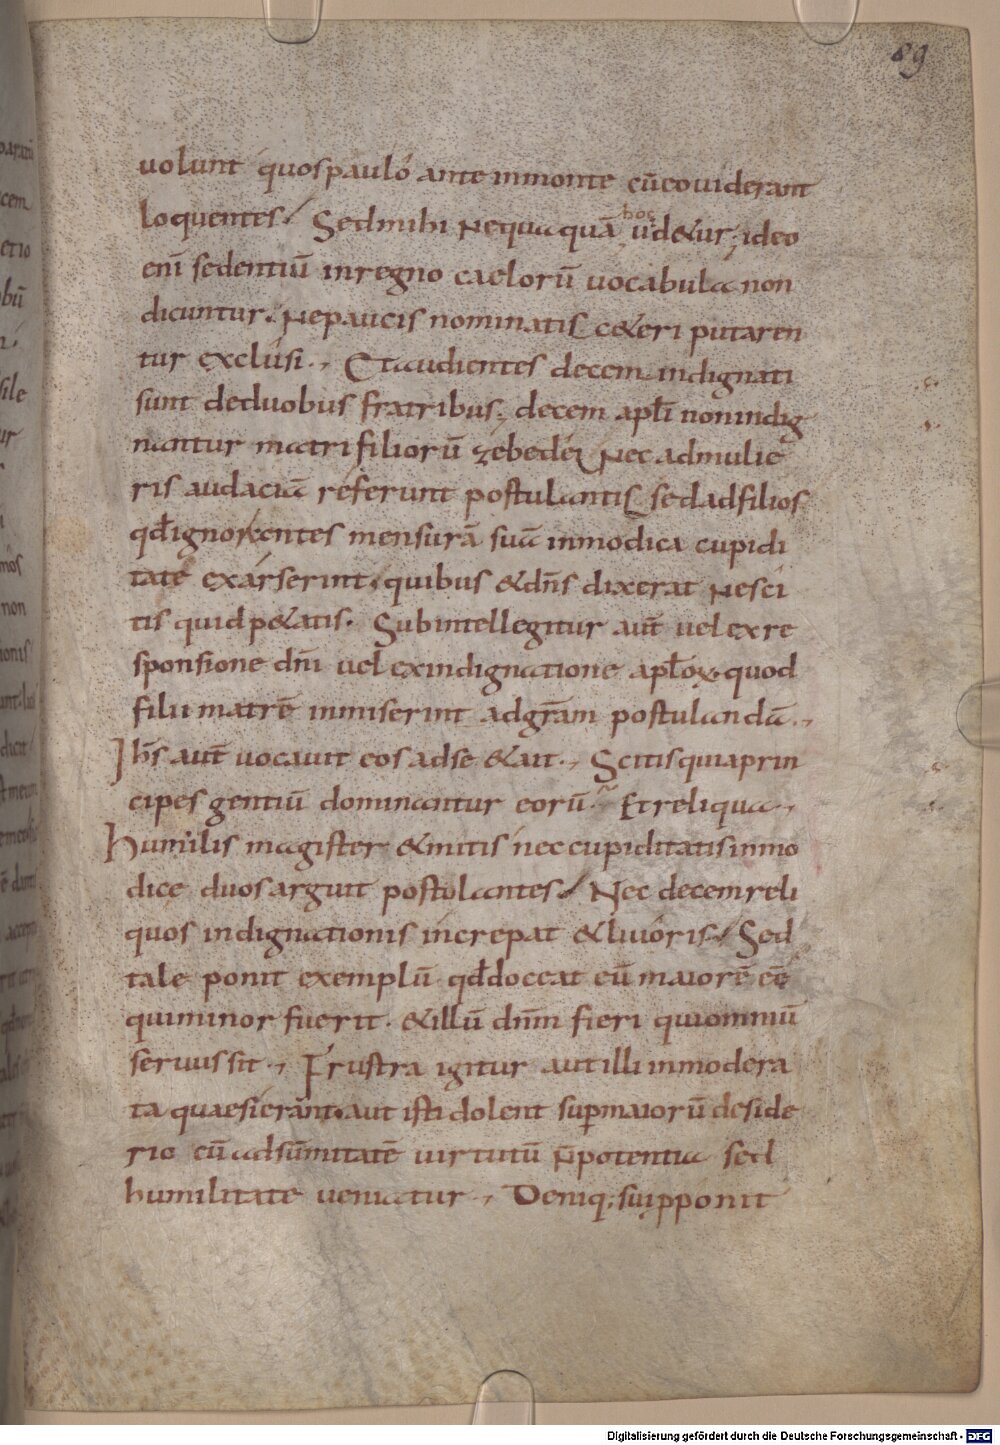 89
uolunt quospaulo ante inmonte cū eo uiderant
loquentes. Sedmihi nequaquā hoc uid&ur; ideo
enī sedentiū inregno caelorū uocabula non
dicuntur. Nepaucis nominatis c&eri putaren
tur exclusi. Etaudientes decem indignati
sunt deduobus fratribus; decem apłi nonindig
nantur matri filiorū zebedei Nec admulie
ris audaciā referunt postulantis sedadfilios
qđ ignorantes mensurā suā inmodica cupidi
tate exarserint. quibus &dn̄s dixerat Nesci
tis quid p&atis. Subintellegitur aut̄ uel exre
sponsione dn̄i uel exindignatione apłoꝝ quod
filii matrē inmiserint adgrām postulandā.
Ih̄s aut̄ uocauit eos adse &ait. Scitis quiaprin
cipes gentiū dominantur eorū. Et reliqua.
Humilis magister &mitis nec cupiditatis inmo
dice duos arguit postolantes. Nec decem reli
quos indignationis increpat &liuoris. Sed
tale ponit exemplū qđ doceat eū maiorē eē
quiminor fuerit. &illū dn̄m fieri quiomniū
seruus sit. Frustra igitur aut illi inmodera
ta quaesierant. aut isti dolent sup̄maiorū deside
rio cū adsūmitatē uirtutū n̄potentia sed
humilitate ueniatur. Deniq; suipponit
Digitalisierung gefördert durch die Deutsche Forschungsgemeinschaft - DFG